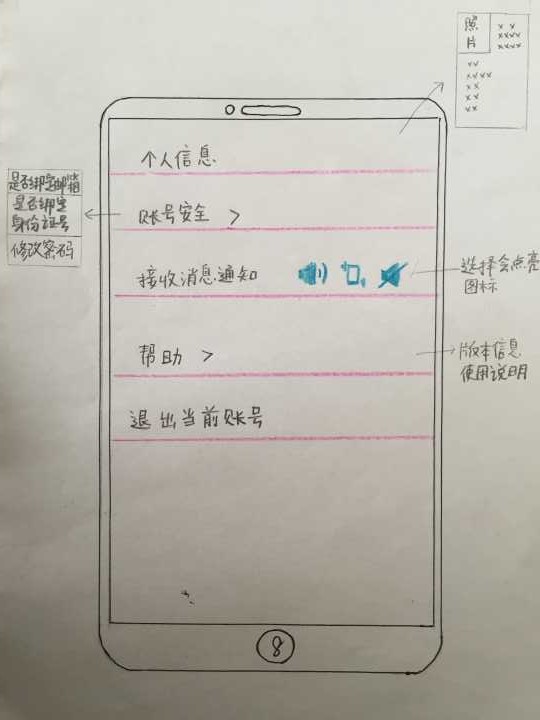 照片
x x
xxxx
xxxx
xx
xxxx
xx
xx
xx
个人信息
是否绑定邮箱
是否绑定
身份证号
修改密码
账号安全 >
接收消息通知
选择会点亮
图标
帮助 >
版本信息
使用说明
退出当前账号
8